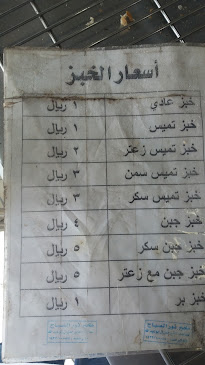 أسعار الخبز
خبز عادي ١ ريال
خبز تميس ١ ريال
خبز تميس زعتر ٢ ريال
خبز تميس سمن ٣ ريال
خبز تميس سكر ٣ ريال
خبز جبن ٤ ريال
خبز جبن سكر ٥ ريال
خبز جبن مع زعتر ٥ ريال
خبز بر ١ ريال